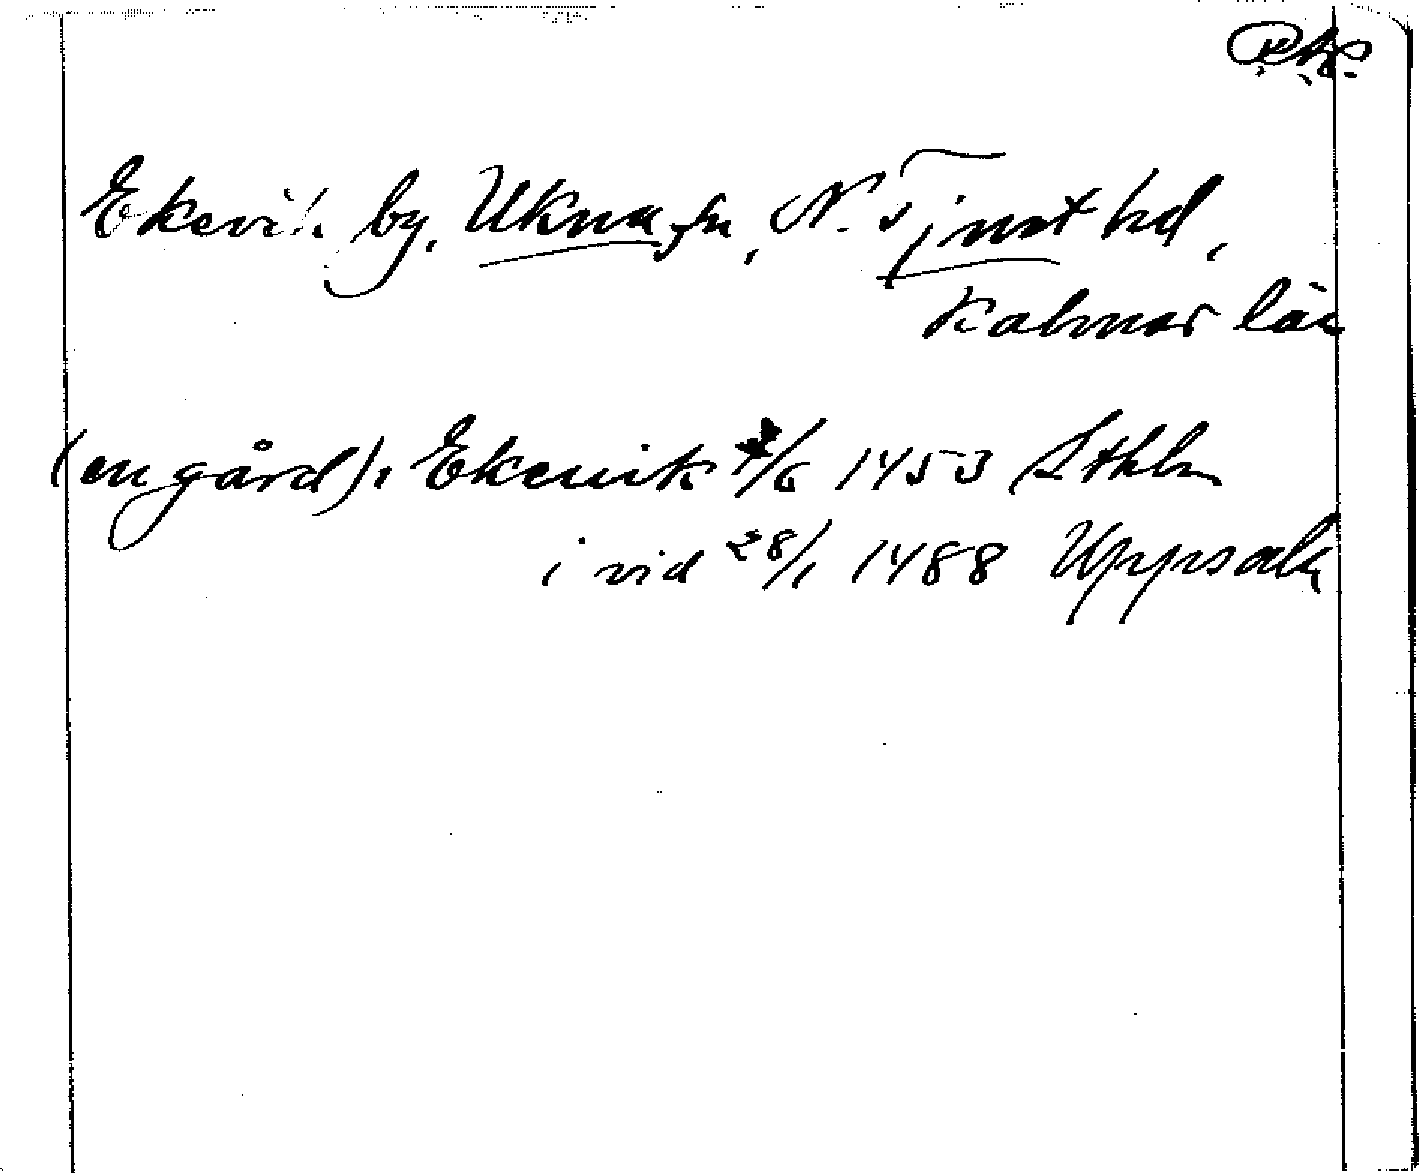 Ekevik by, Ukna sn, N. Tjust hd,
Kalmar län
(en gård), Ekeuik /6 1453 Sthlm
i vid 28/1 1488 Uppsala